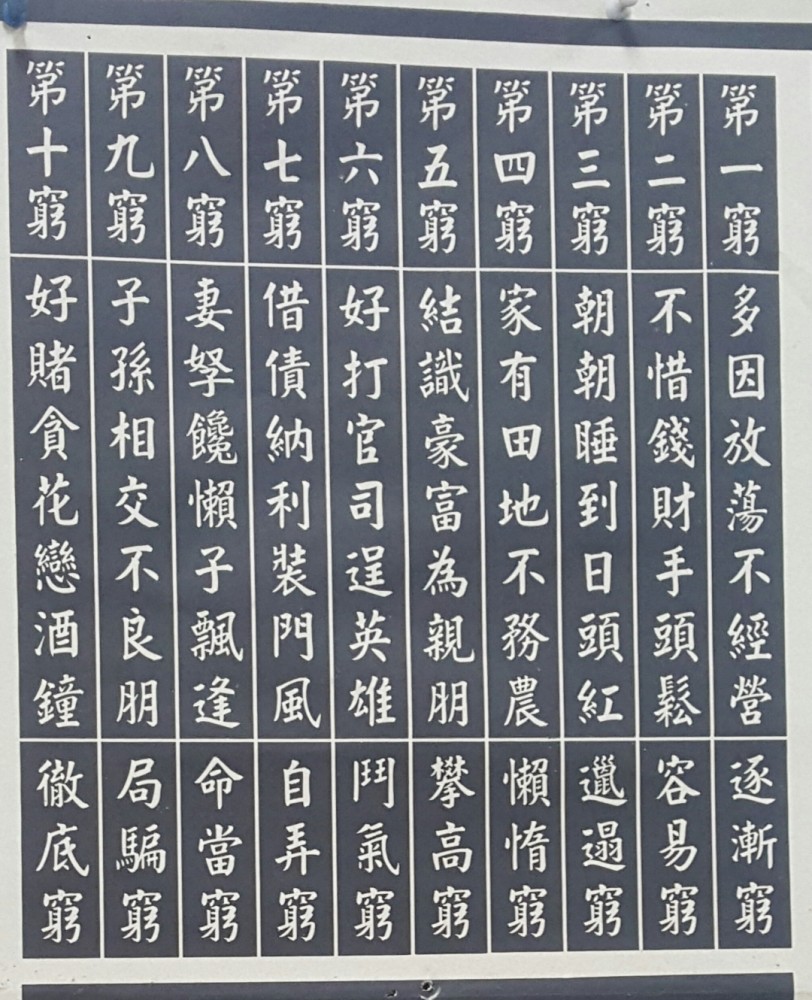 第一窮 多因放蕩不經營 逐漸窮
第二窮 不惜錢財手頭鬆 容易窮
第三窮 朝朝睡到日頭紅 邋遢窮
第四窮 家有田地不務農 懶惰窮
第五窮 結識豪富為親朋 攀高窮
第六窮 好打官司逞英雄 鬥氣窮
第七窮 借債納利裝門風 自弄窮
第八窮 妻孥饞懶子飄逢 命當窮
第九窮 子孫相交不良朋 局騙窮
第十窮 好賭貪花戀酒鐘 徹底窮